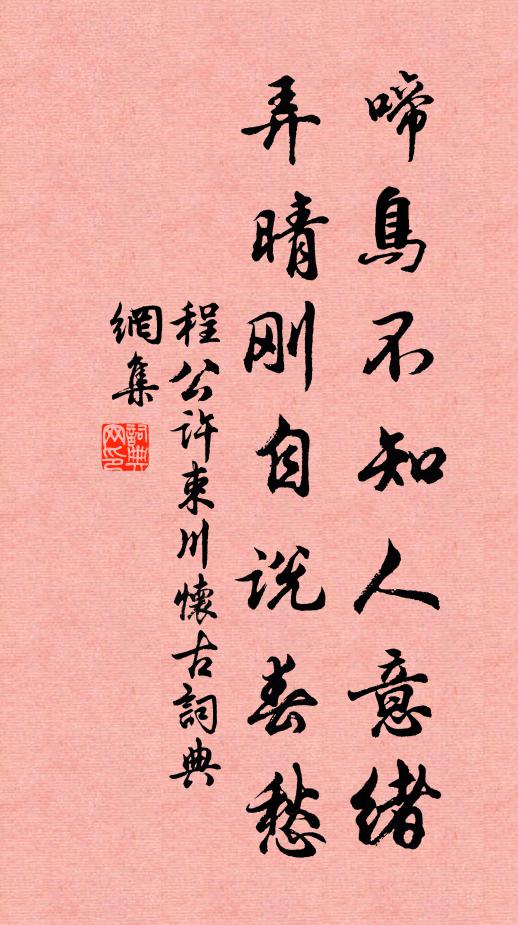 啼鳥不知人意緒
弄晴刚自説春愁
程公许東川懷古詞典
網集
詞典網印